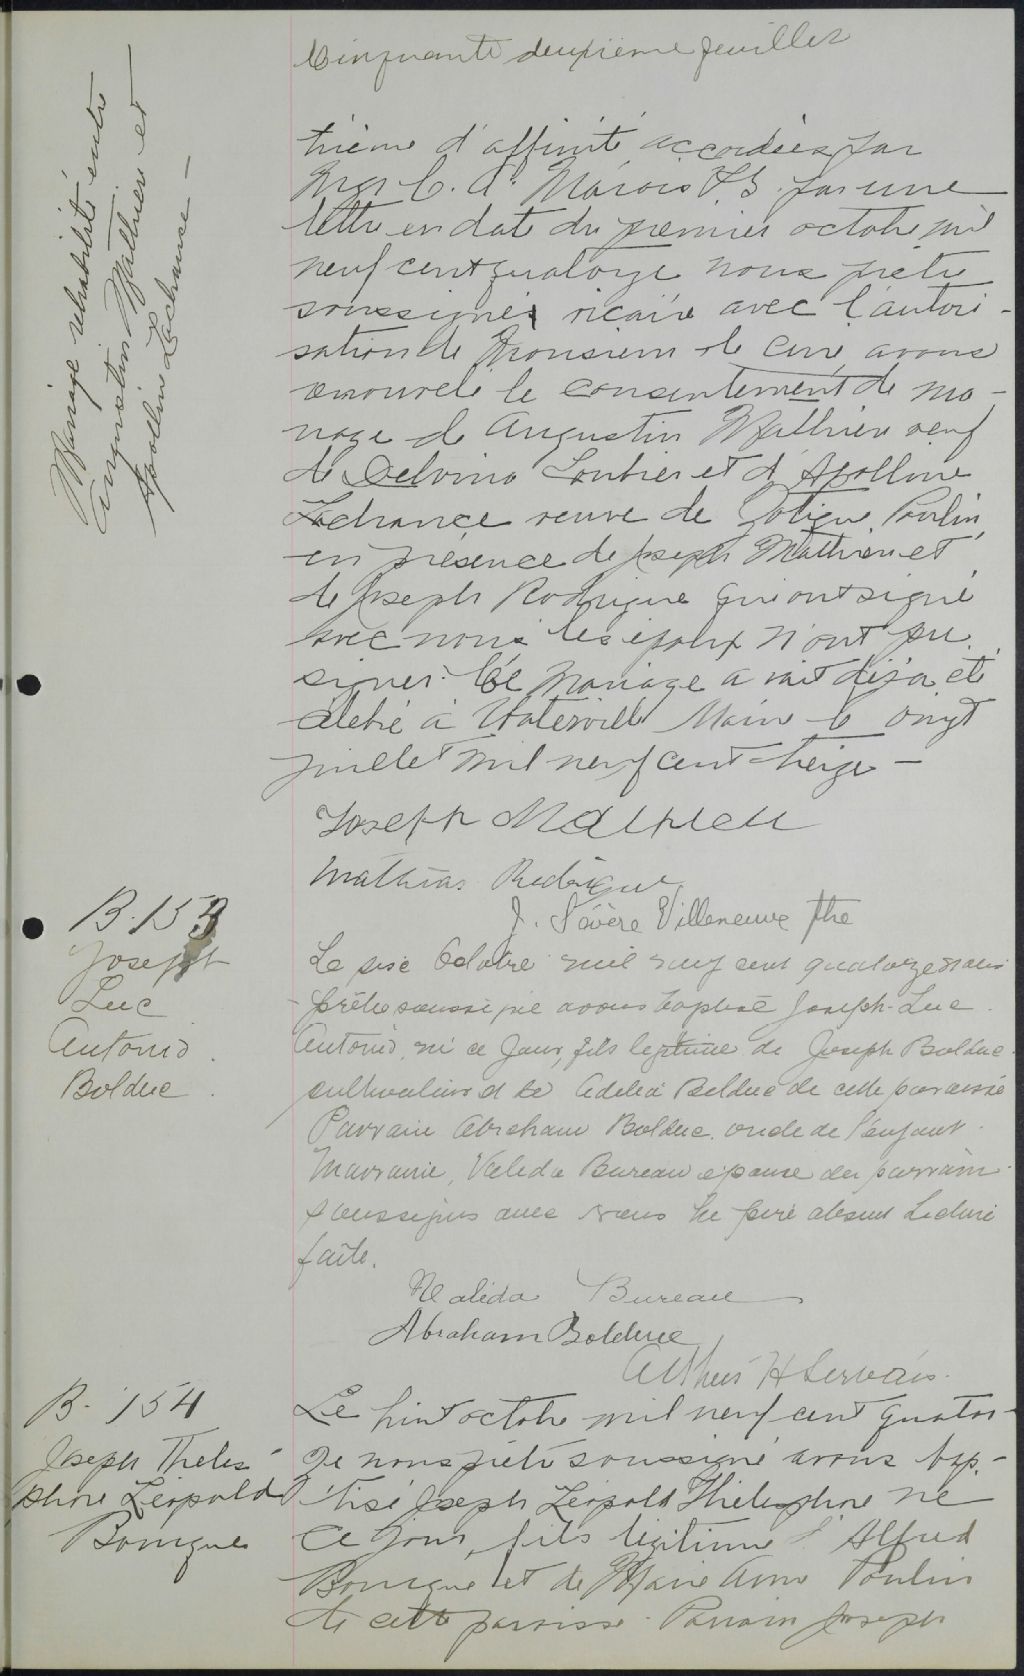 Cinquante deuxième feuillet
Mariage réhabilité entre
Augustin Mathieu et
Apolline Lachance —
trième d'affinité accordées par
Mgr C. A. Marois V.G. par une
lettre en date du premier octobre mil
neuf cent quatorze nous prêtre
soussigné vicaire avec l'autori-
sation de Monsieur le curé avons
renouvelé le consentement de ma-
riage de Augustin Mathieu veuf
de Delvina Loubier et d'Apolline
Lachance veuve de Zotique Poulin
en présence de Joseph Mathieu et
de Joseph Rodrigue qui ont signé
avec nous les époux n'ont pu
signer. Ce mariage avait déjà été
célébré à Waterville Maine le onze
juillet mil neuf cent treize —
Joseph Mathieu
Mathias Rodrigue
J. Sévère Villeneuve ptre
B. 153
Joseph
Luc
Antonio
Bolduc
Le six Octobre mil neuf cent quatorze nous
prêtre soussigné avons baptisé Joseph-Luc
Antonio, né ce jour, fils légitime de Joseph Bolduc
cultivateur et de Adelia Bolduc de cette paroisse
Parrain Abraham Bolduc oncle de l'enfant.
Marraine, Valeda Bureau épouse du parrain
soussignés avec nous le père absent Lecture
faite.
Valeda Bureau
Abraham Bolduc
Arthur H Servais
B. 154
Joseph Théles-
phore Léopold
Bourque
Le huit octobre mil neuf cent quator-
ze nous prêtre soussigné avons bap-
tisé Joseph Léopold Thélesphore né
ce jour, fils légitime d'Alfred
Bourque et de Marie Anne Poulin
de cette paroisse. Parrain Joseph